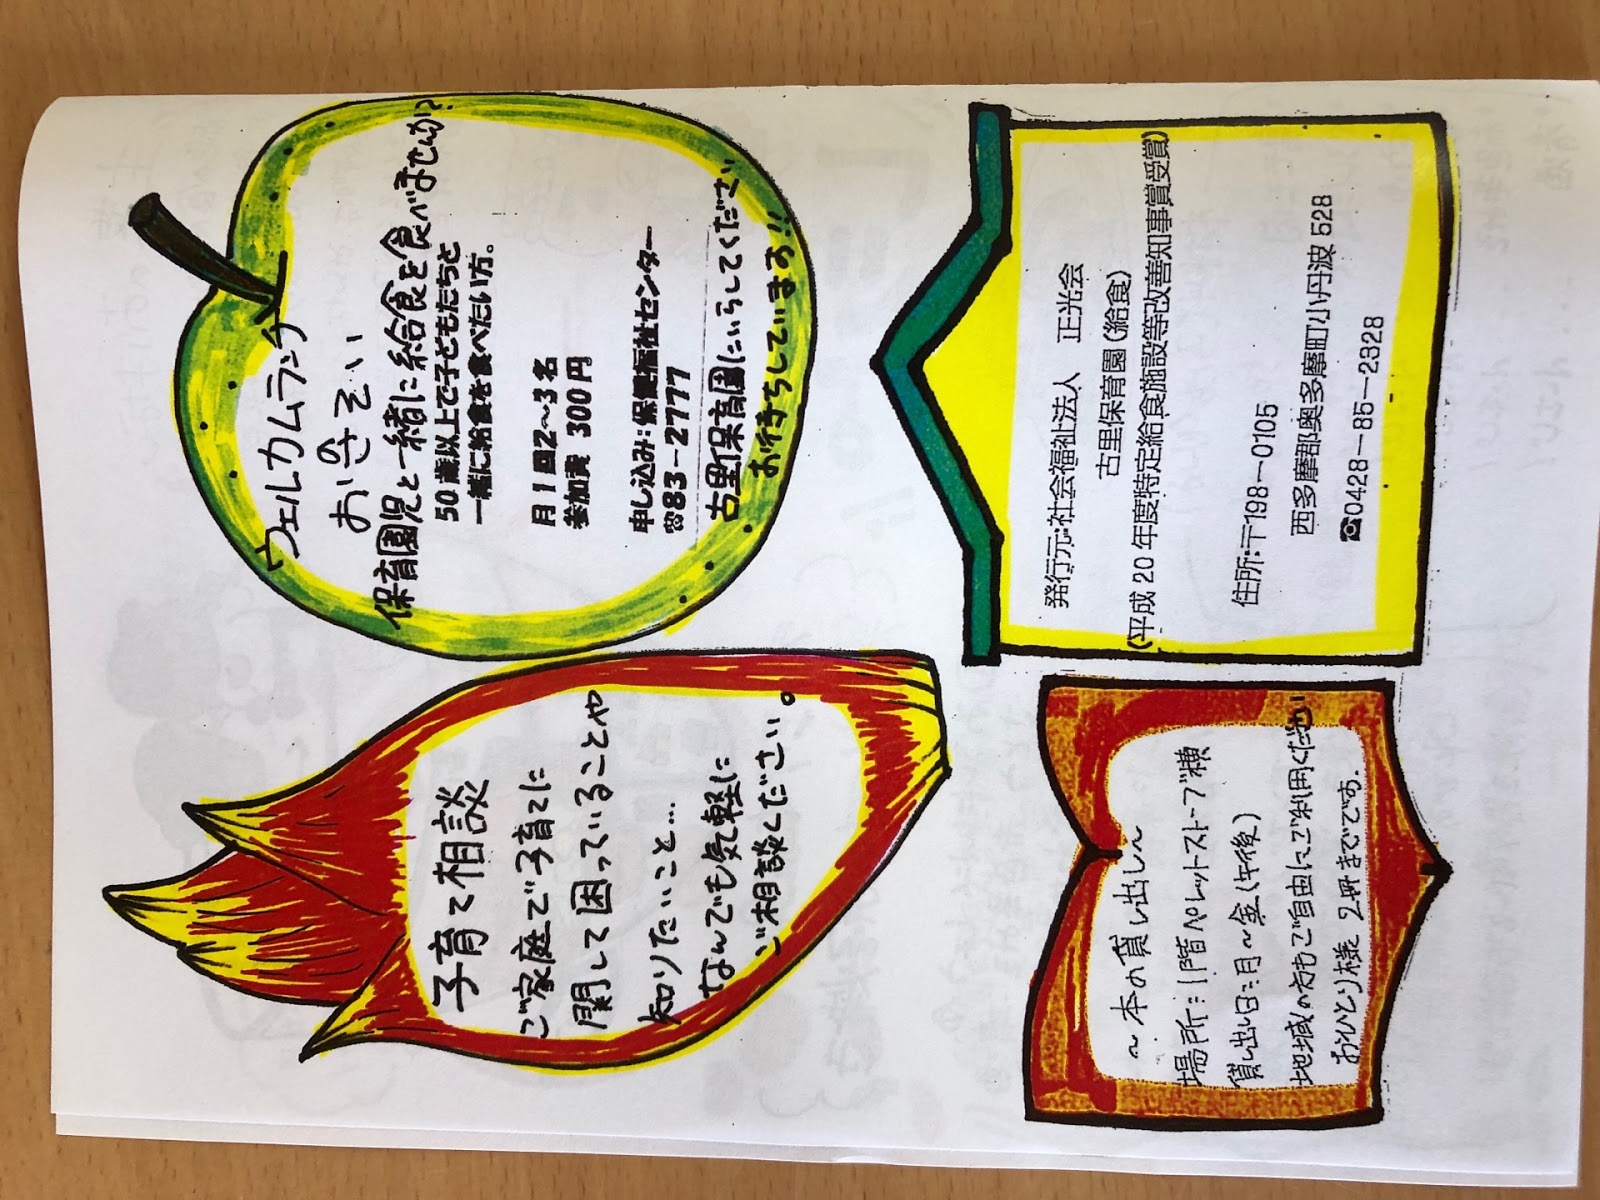 子育て相談
ご家庭で子育てに
関して困っていることや
知りたいこと…
なんでも気軽に
ご相談ください。
ウェルカムランチ
お誘い
保育園児と一緒に給食を食べませんか？
50歳以上で子どもたちと
一緒に給食を食べたい方。
月1回2～3名
参加費 300円
申し込み：保健福祉センター
☎83－2777
古里保育園にいらしてください
お待ちしています！！
～本の貸し出し～
場所：1階ペレットストーブ横
貸し出し日：月～金（午後）
地域の方もご自由にご利用ください
おひとり様 2冊までです．
発行元：社会福祉法人 正光会
古里保育園（給食）
（平成20年度特定給食施設等改善知事賞受賞）
住所：〒198－0105
西多摩郡奥多摩町小丹波528
☎0428－85－2328